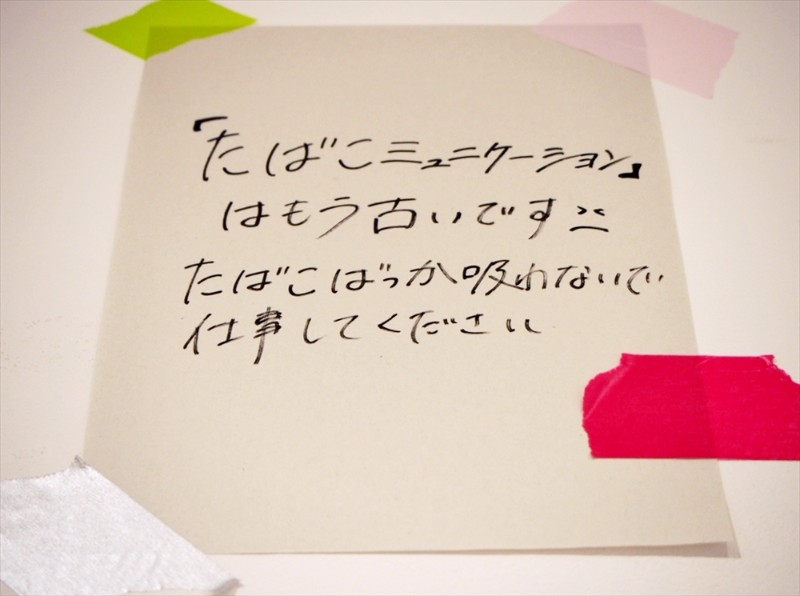 「たばこミュニケーション」
はもう古いです
たばこばっか吸わないで
仕事してください